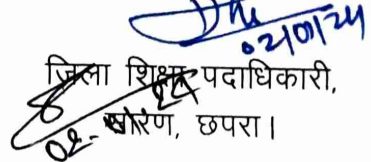 02/01/24
जिला शिक्षा पदाधिकारी,
सारण, छपरा।